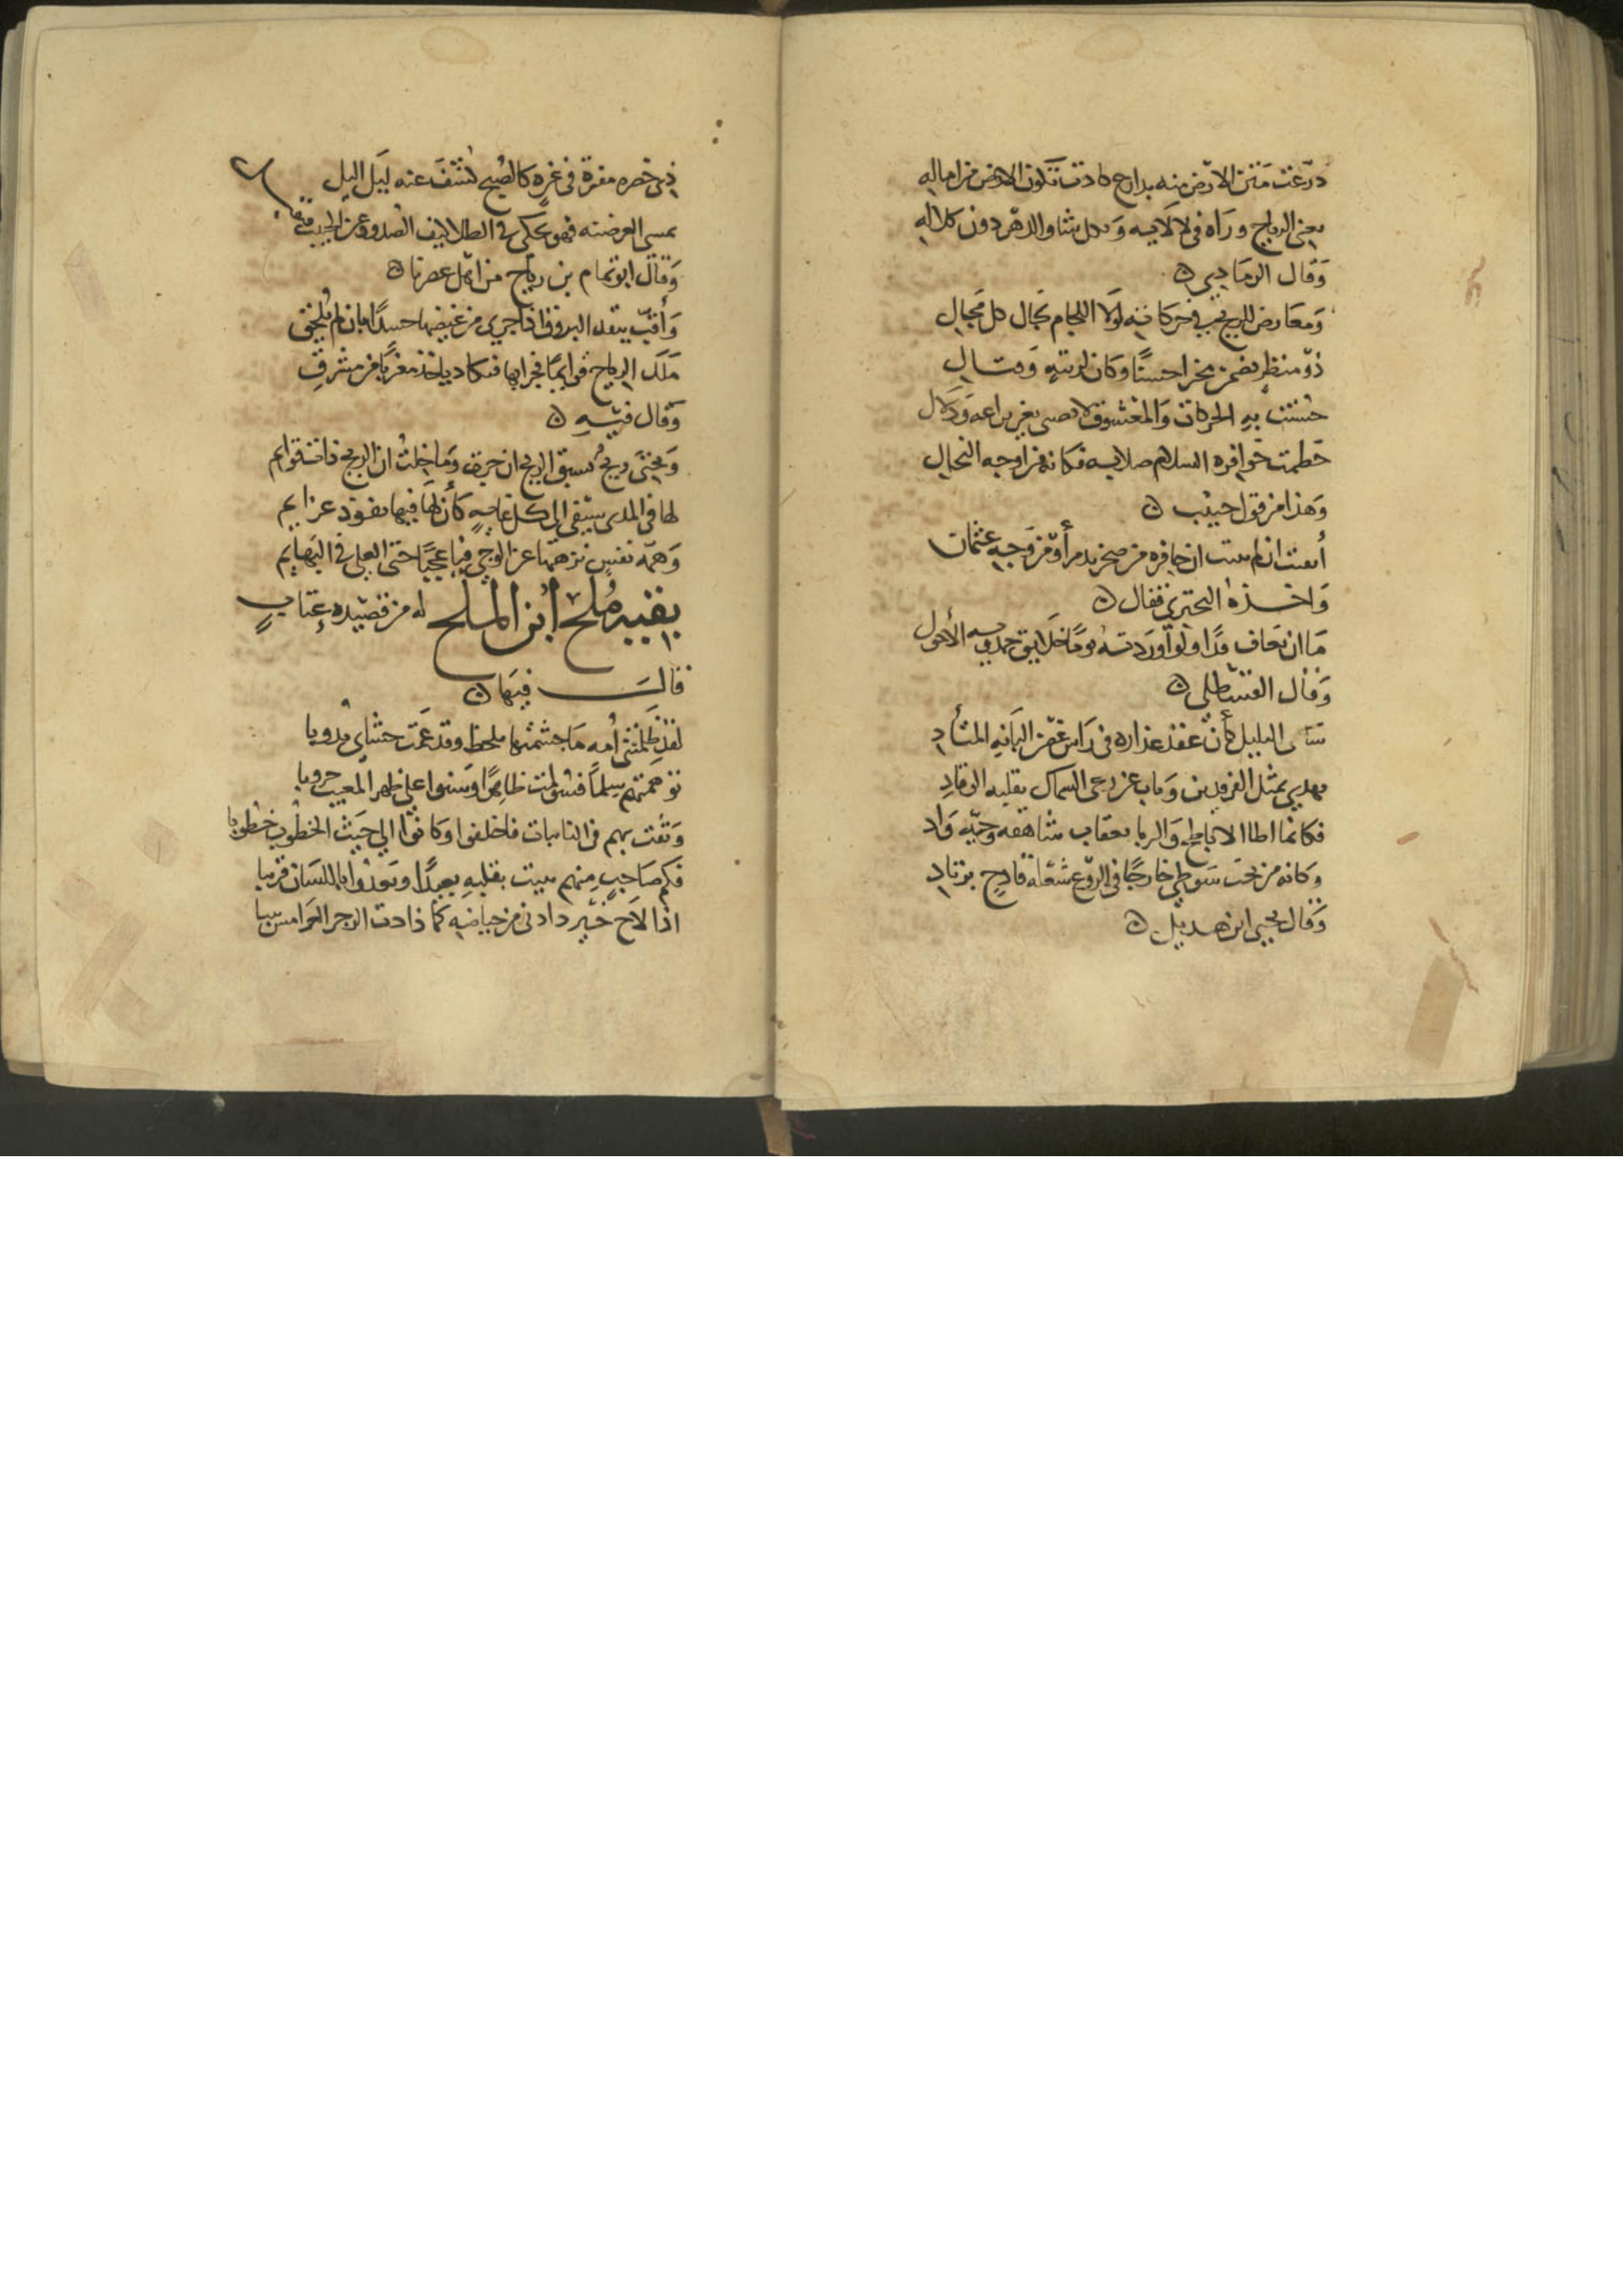 درّعت متن الارض منه بدارح كادت تكون الارض من اماله
يعني الرياح وراه في لالايه وبكل شاو الدهر دون كلاله
وقال الرمادي
ومعارض للريح في حركاته لولا اللجام لجال كل مجال
ذو منظر حسنا وكان لزينة وقتال
حسنت به الحركات والمعشوق لا بغير براعه ودلال
حطمت حوافره السلام صلابه فكانه من اوجه البخال
وهذا من قول حبيب
أيقنت ان لم تثبت ان حافره من صخر تدمر أو من وجه عثمان
واخذه البحتري فقال
ما ان يعاف قذا ولو اوردته يوما خلايق حمدويه الأحول
وقال القسطلي
سامى التليل كأن عقد عذاره في راس غصن البانة المتأد
يهدي بمثل الفرقدين وناب عن رعي السماك بقلبه الوقاد
فكانما اطا الاباطح والربا بعقاب شاهقه وحيّة واد
وكانه من تحت سوطي خارجا في الروع شعلة قادح بزناد
وقال يحيى ابن هديل
في غرة كالصبح كشف عنه ليل اليل
يمسى العرضنه فهو يحكى في الطلا الصدود عن الحبيب
وقال ابو تمام بن رباح من اهل عصرنا
وأقبّ البروق اذا جرى من غيضها حسدا بان لم تلحق
ملك الرياح قوايما فجرا بها فكاد ياخذ مغربا من مشرق
وقال فيه
وتحتى ريح تسبق الريح ان جرت وما خلت ان الريح ذات قوايم
لها في المدى سبق الى كل غايه كأن لها فيها نفوذ عزايم
وهمّه نفس نزهتها عن الوجى فيا عجبا حتى العلى في البهايم
بقيه ملح ابن الملح له من قصيده عتاب
قال فيها
لقد ظلمتنى أمه ما جشمتها بلحظ وقد عمّت حشاي ندوبا
توهمتهم سلما فشولمت ظاهرا وسنوا على ظهر المغيب حروبا
وثقت بهم في النايبات فاخلفوا وكانوا الى جيش الخطوب خطوبا
فكم صاحب منهم يبيت بقلبه بعيدا ويغدوا باللسان قريبا
اذا لاح خير ذادنى من حياضه كما ذادت